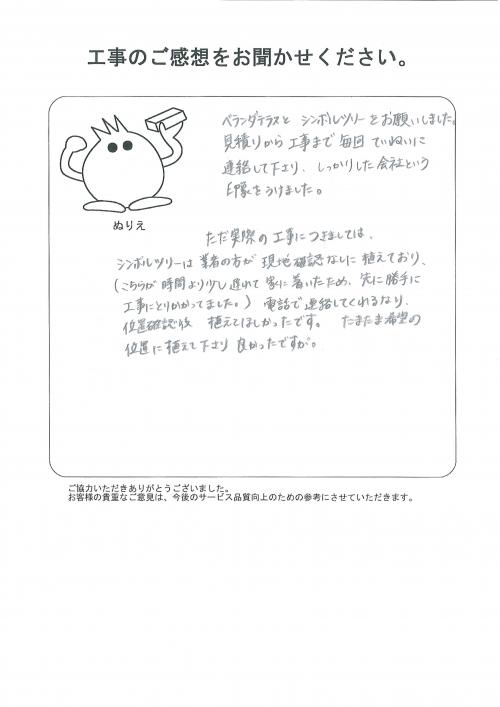 工事のご感想をお聞かせください。
ベランダテラスと シンボルツリーをお願いしました。
見積りから工事まで毎回ていねいに
連絡して下さり、しっかりした会社という
印象をうけました。
ぬりえ
ただ実際の工事につきましては、
シンボルツリーは業者の方が現地確認なしに植えており、
(こちらが時間より少し遅れて家に着いたため、先に勝手に
工事にとりかかってました。) 電話で連絡してくれるなり、
位置確認後 植えてほしかったです。 たまたま希望の
位置に植えて下さり良かったですが。
ご協力いただきありがとうございました。
お客様の貴重なご意見は、今後のサービス品質向上のための参考にさせていただきます。